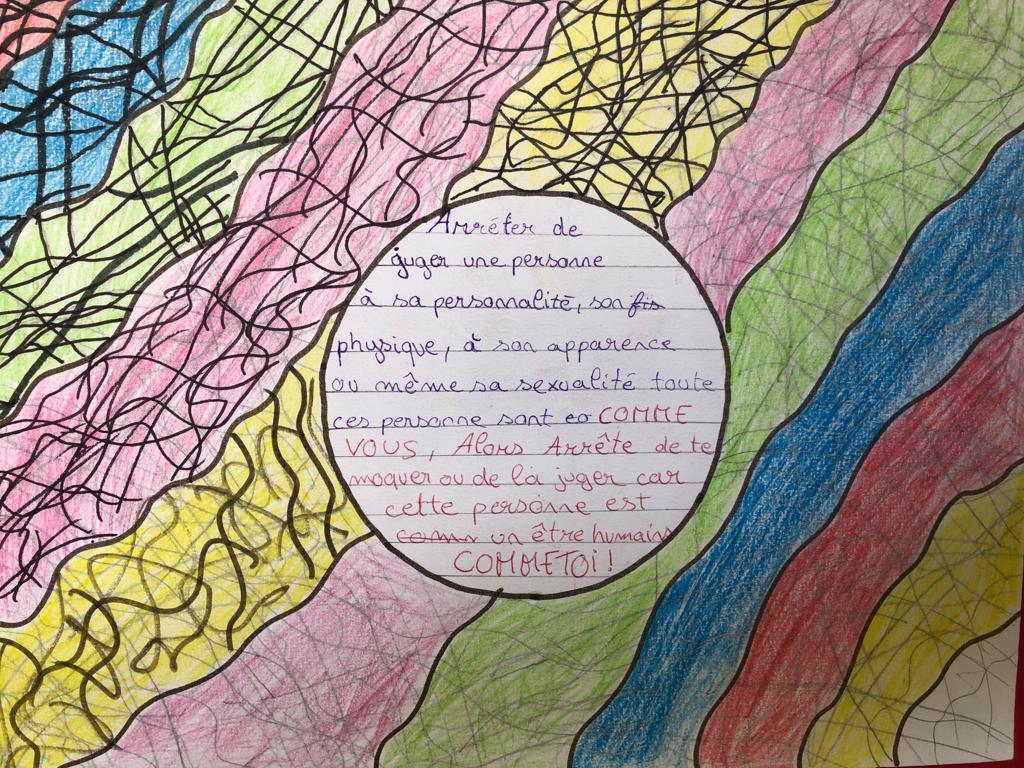 Arrêter de
juger une personne
à sa personnalité, son fis
physique, à son apparence
ou même sa sexualité toute
ces personne sont co COMME
VOUS, Alors Arrête de te
moquer ou de la juger car
cette personne est
comm un être humains
COMME TOI !